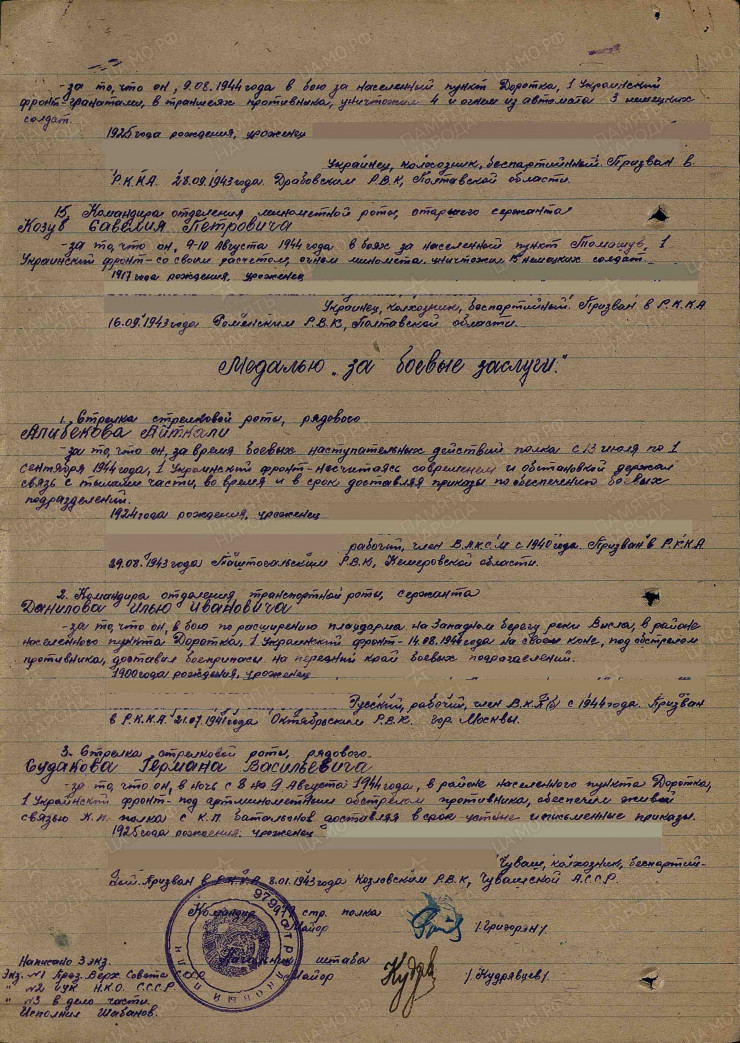 - за то, что он, 9.08.1944 года в бою за населенный пункт Доротка, 1 Украинский
фронт-гранатами, в траншеях противника, уничтожил 4 и огнем из автомата 3 немецких
солдат.
1925 года рождения, уроженец
Украинец, колхозник, беспартийный. Призван в
Р.К.К.А. 28.09.1943 года. Драбовским Р.В.К, Полтавской области.
15. Командира отделения минометной роты, старшего сержанта
Козуб Савелия Петровича
- за то, что он, 9-10 Августа 1944 года в боях за населенный пункт Томашув, 1
Украинский фронт-со своим расчетом, огнем миномета уничтожил немецких солдат.
1917 года рождения, уроженец
Украинец, колхозник, беспартийный. Призван в Р.К.К.А
16.09.1943 года Роменским Р.В.К, Полтавской области.
Медалью „за боевые заслуги."
1. Стрелка стрелковой роты, рядового
Алибекова Айтнали
- за то, что он, за время боевых наступательных действий полка с 13 июля по 1
сентября 1944 года, 1 Украинский фронт-несчитаясь современем и обстановкой держал
связь с тылами части, во время и в срок доставляя приказы по обеспечению боевых
подразделений.
1924 года рождения, уроженец
рабочий, член В.Л.К.С.М с 1940 года. Призван в Р.К.К.А.
29.08.1943 года Таштогольским Р.В.К, Кемеровской области.
2. Командира отделения, транспортной роты, сержанта
Данилова Илью Ивановича
- за то, что он, в бою по расширению плацдарма на Западном берегу реки Висла, в районе
населенного пункта Доротка, 1 Украинский фронт-14.08.1944 года на своем коне, под обстрелом
противника, доставил боеприпасы на передний край боевых подразделений.
1900 года рождения, уроженец
Русский, рабочий, член В.К.П(б) с 1944 года. Призван
в Р.К.К.А. 21.07.1941 года Октябрьским Р.В.К. гор Москвы.
3. Стрелка стрелковой роты, рядового
Судакова Германа Васильевича
- за то, что он, в ночь с 8 на 9 Августа 1944 года, в районе населенного пункта Доротка,
1 Украинский фронт-под артминометным обстрелом противника, обеспечил живой
связью К.П. полка с К.П. батальонов доставляя в срок устные и письменные приказы.
1925 года рождения, уроженец
Чуваш, колхозник, беспартий-
ный. Призван в Р.К.К.А. 8.01.1943 года Козловским Р.В.К, Чувашской А.С.С.Р.
Командир стр. полка
Майор /Григорян/
Начальник штаба
Майор /Кудрявцев/
Написано 3 экз.
Экз. №1 През. Верх. Совета СССР
" №2 ГУК Н.К.О. С.С.С.Р.
" №3 в дело части.
Исполнил Шабанов.